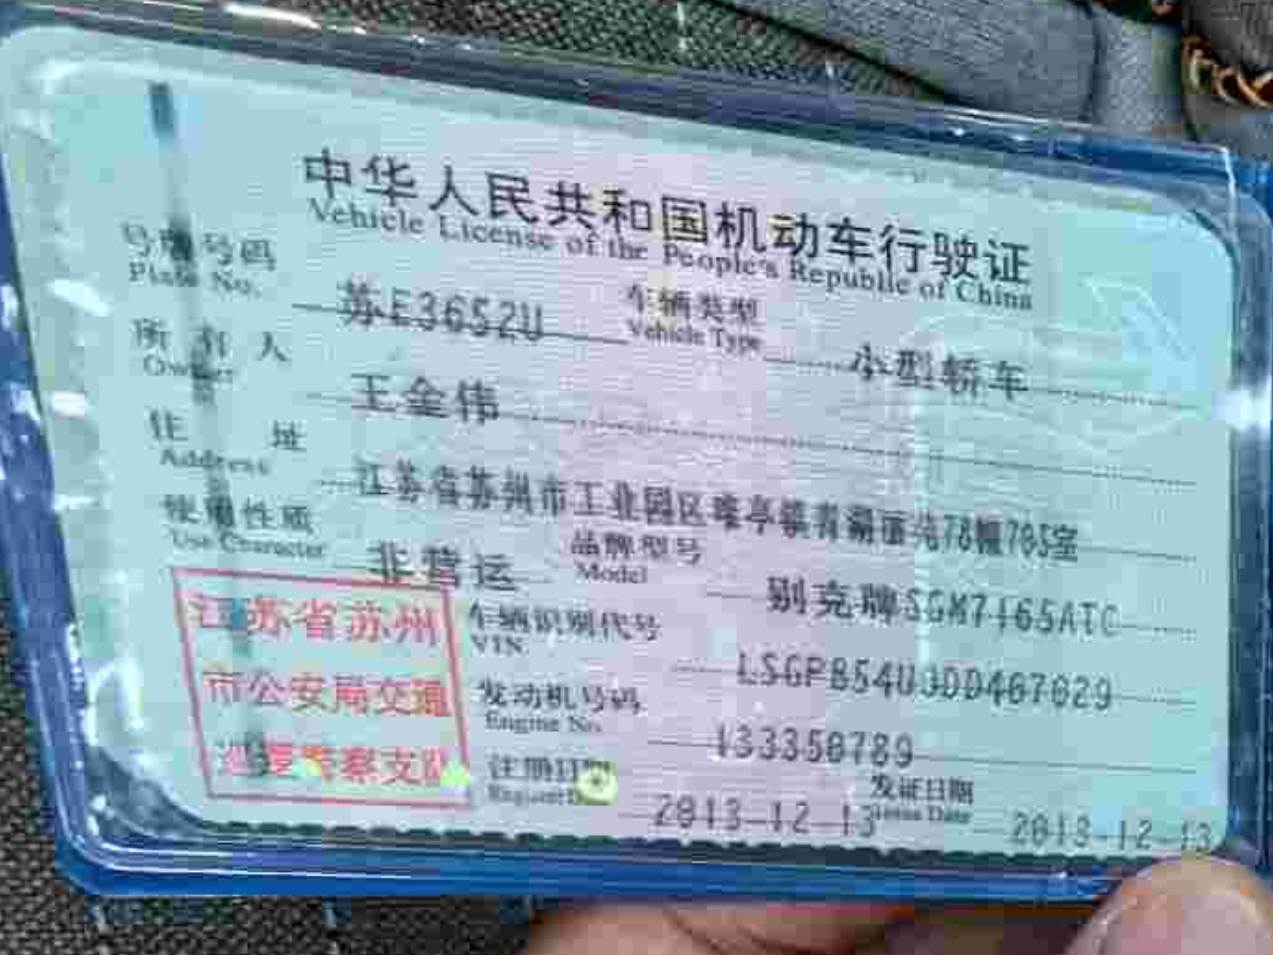 中华人民共和国机动车行驶证
Vehicle License of the People's Republic of China
号牌号码 苏E3652U 车辆类型 小型轿车
Plate No. Vehicle Type
所有人 王金伟
Owner
住址 江苏省苏州市工业园区唯亭镇青湖丽苑78幢705室
Address
使用性质 非营运 品牌型号 别克牌SGM7165ATC
Use Character Model
江苏省苏州
市公安局交通
巡逻警察支队
车辆识别代号 LSGPB54U3DD467629
VIN
发动机号码 133350789
Engine No.
注册日期 2013-12-13 发证日期 2013-12-13
Issue Date